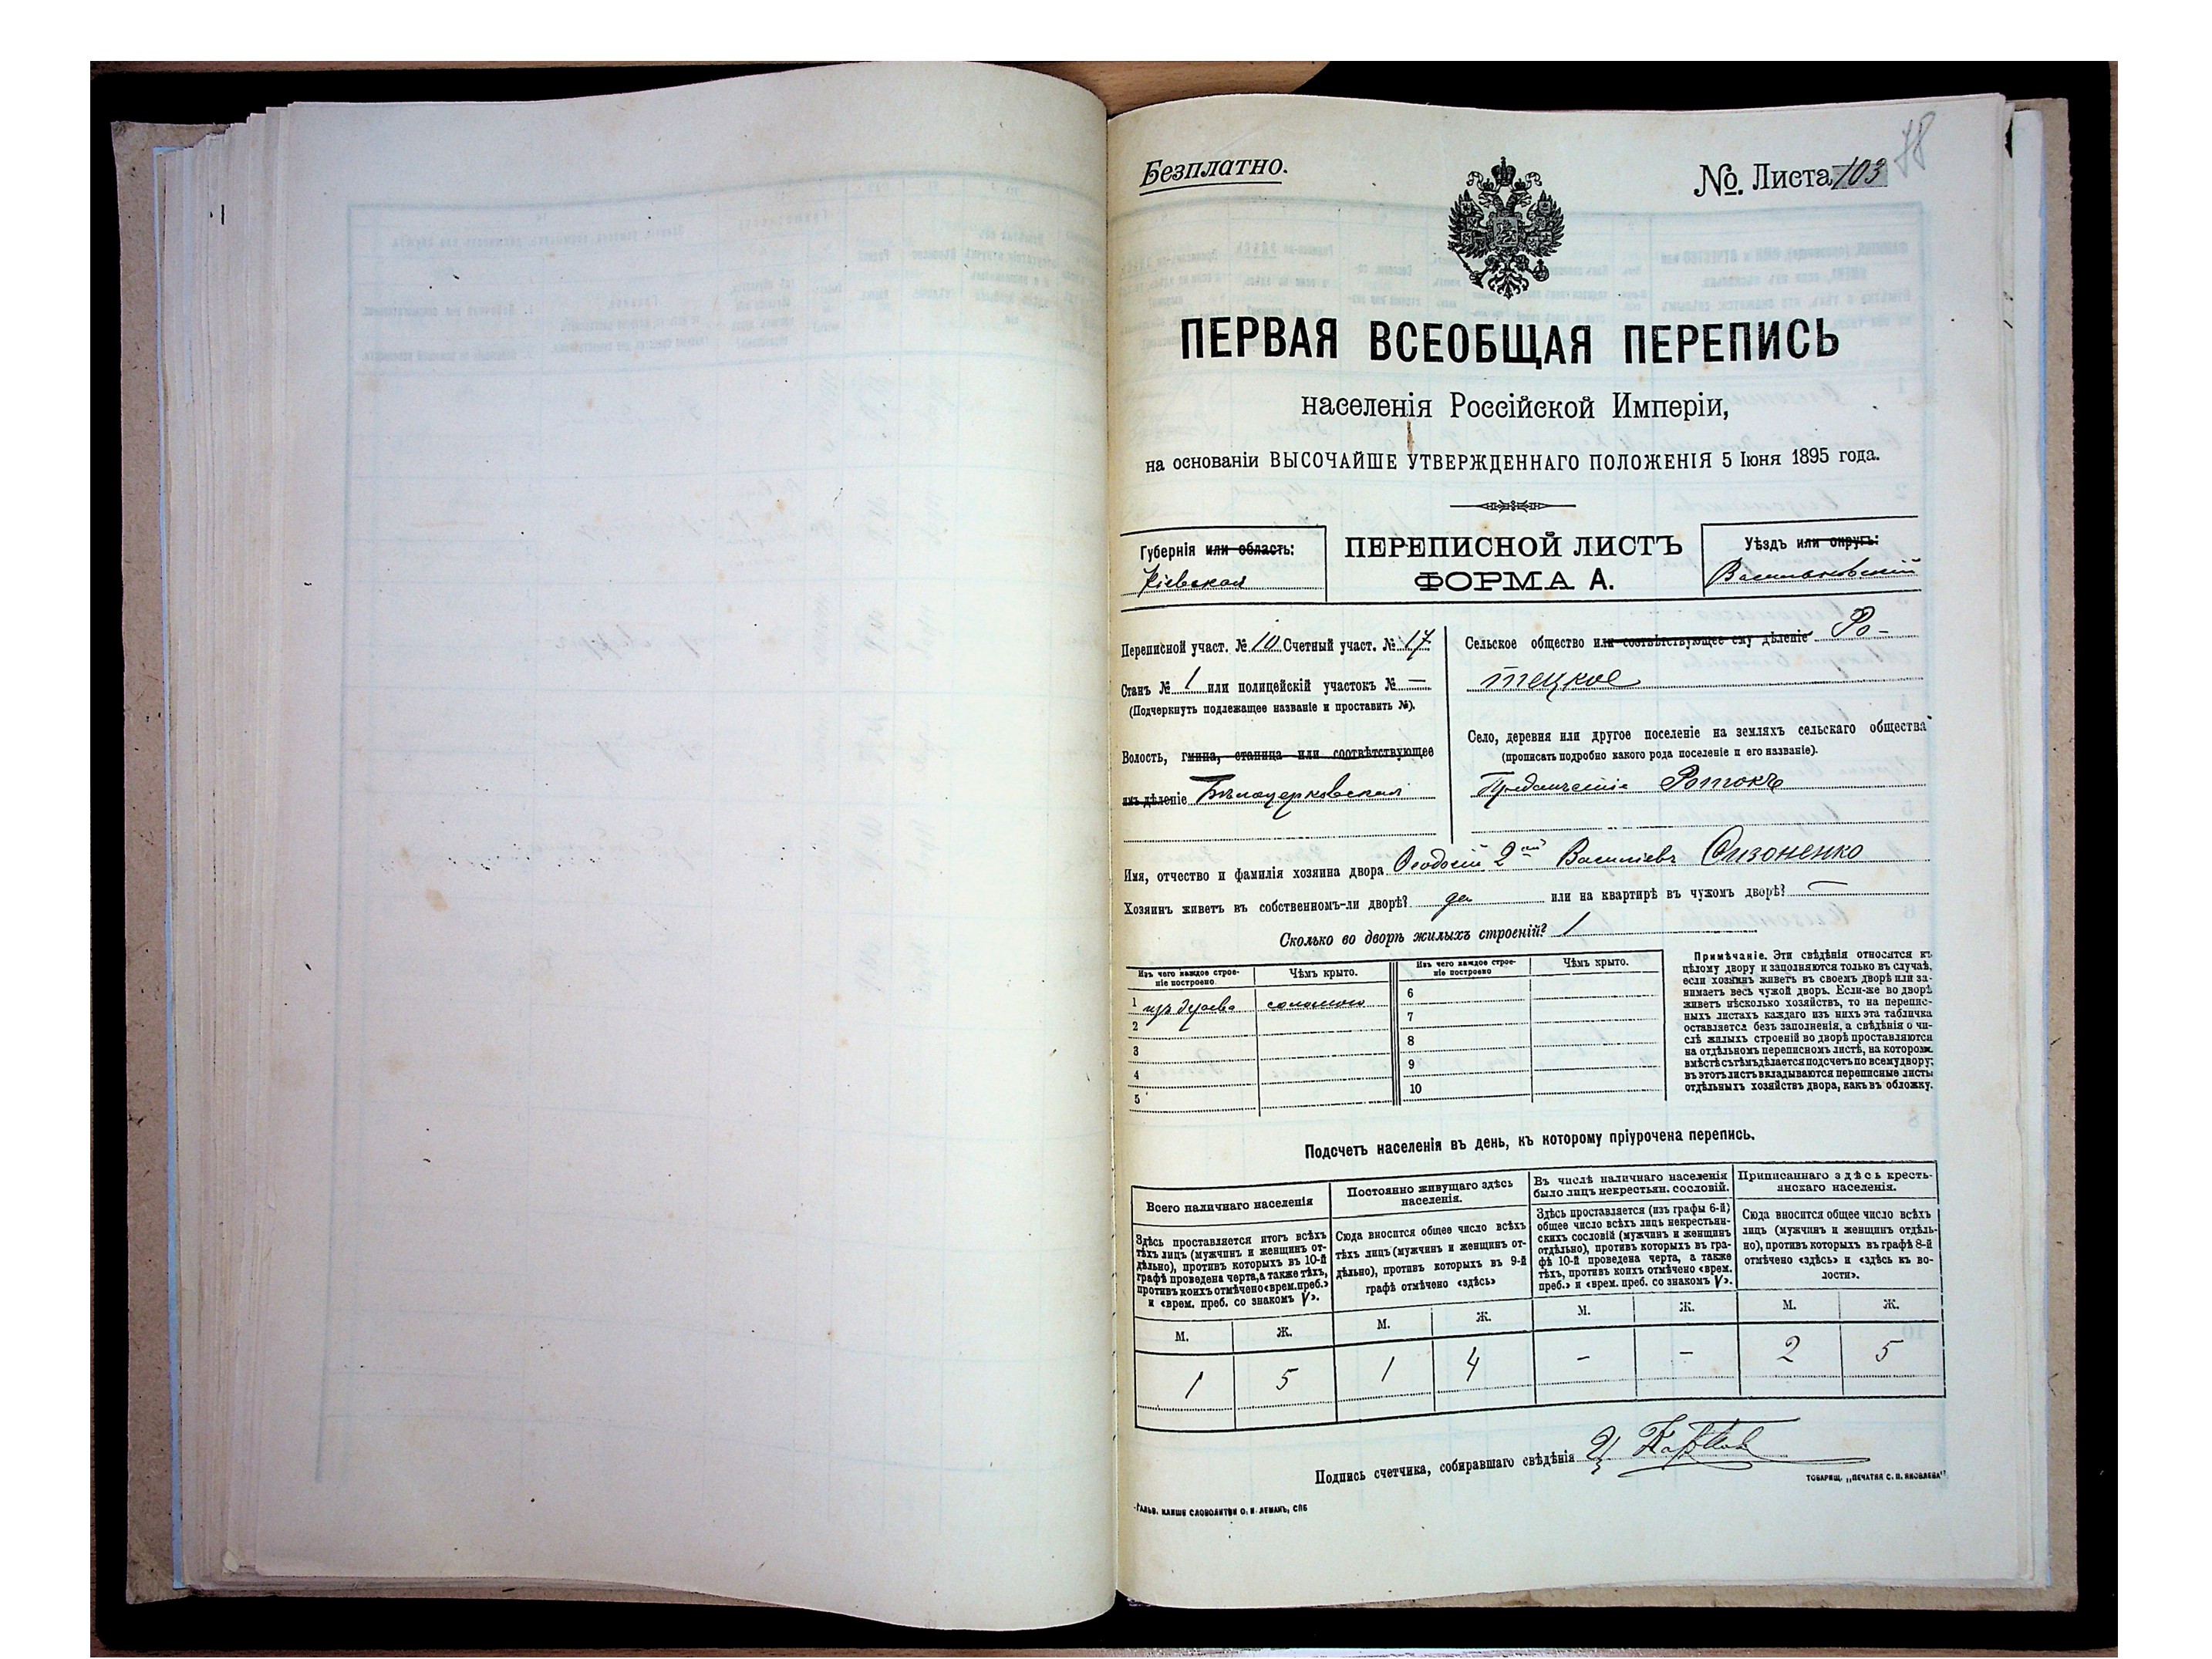 Безплатно.
№ Листа 103
78
ПЕРВАЯ ВСЕОБЩАЯ ПЕРЕПИСЬ
населенія Россійской Имперіи,
на основаніи ВЫСОЧАЙШЕ УТВЕРЖДЕННАГО ПОЛОЖЕНІЯ 5 Іюня 1895 года.
Губернія или область:
Кіевская
ПЕРЕПИСНОЙ ЛИСТЪ
ФОРМА А.
Уѣздъ или округъ:
Васильковскій
Переписной участ. № 10 Счетный участ. № 17
Станъ № 1 или полицейскій участокъ № —
(Подчеркнуть подлежащее названіе и проставить №).
Волость, гмина, станица или соотвѣтствующее
имъ дѣленіе Бѣлоцерковская
Сельское общество или соотвѣтствующее ему дѣленіе Ро-
тецкое
Село, деревня или другое поселеніе на земляхъ сельскаго общества
(прописать подробно какого рода поселеніе и его названіе).
Предмѣстіе Ротокъ
Имя, отчество и фамилія хозяина двора Ѳеодосій 2ой Василіевъ Сизоненко
Хозяинъ живетъ въ собственномъ-ли дворѣ? да или на квартирѣ въ чужомъ дворѣ? —
Сколько во дворѣ жилыхъ строеній? 1
Изъ чего каждое строе-
ніе построено
Чѣмъ крыто.
Изъ чего каждое строе-
ніе построено
Чѣмъ крыто.
1 изъ дерева соломою
2
3
4
5
6
7
8
9
10
Примѣчаніе. Эти свѣдѣнія относятся къ
цѣлому двору и заполняются только въ случаѣ,
если хозяинъ живетъ въ своемъ дворѣ или за-
нимаетъ весь чужой дворъ. Если-же во дворѣ
живетъ нѣсколько хозяйствъ, то на перепис-
ныхъ листахъ каждаго изъ нихъ эта табличка
оставляется безъ заполненія, а свѣдѣнія о чи-
слѣ жилыхъ строеній во дворѣ проставляются
на отдѣльномъ переписномъ листѣ, на которомъ
вмѣстѣ съ тѣмъ дѣлается подсчетъ по всему двору;
въ этотъ листъ вкладываются переписные листы
отдѣльныхъ хозяйствъ двора, какъ въ обложку.
Подсчетъ населенія въ день, къ которому пріурочена перепись.
Всего наличнаго населенія
Здѣсь проставляется итогъ всѣхъ
тѣхъ лицъ (мужчинъ и женщинъ от-
дѣльно), противъ которыхъ въ 10-й
графѣ проведена черта, а также тѣхъ,
противъ коихъ отмѣчено «врем. преб.»
и «врем. преб. со знакомъ V».
Постоянно живущаго здѣсь
населенія.
Сюда вносится общее число всѣхъ
тѣхъ лицъ (мужчинъ и женщинъ от-
дѣльно), противъ которыхъ въ 9-й
графѣ отмѣчено «здѣсь»
Въ числѣ наличнаго населенія
было лицъ некрестьян. сословій.
Здѣсь проставляется (изъ графы 6-й)
общее число всѣхъ лицъ некрестьян-
скихъ сословій (мужчинъ и женщинъ
отдѣльно), противъ которыхъ въ гра-
фѣ 10-й проведена черта, а также
тѣхъ, противъ коихъ отмѣчено «врем.
преб.» и «врем. преб. со знакомъ V».
Приписаннаго здѣсь кресть-
янскаго населенія.
Сюда вносится общее число всѣхъ
лицъ (мужчинъ и женщинъ отдѣль-
но), противъ которыхъ въ графѣ 8-й
отмѣчено «здѣсь» и «здѣсь къ во-
лости».
М. Ж. М. Ж. М. Ж. М. Ж.
1 5 1 4 – – 2 5
Подпись счетчика, собиравшаго свѣдѣнія
ТОВАРИЩ. „ПЕЧАТНЯ С. П. ЯКОВЛЕВА“
ГАЛЬВ. КЛИШЕ СЛОВОЛИТНИ О. И. ЛЕМАНЪ, СПБ